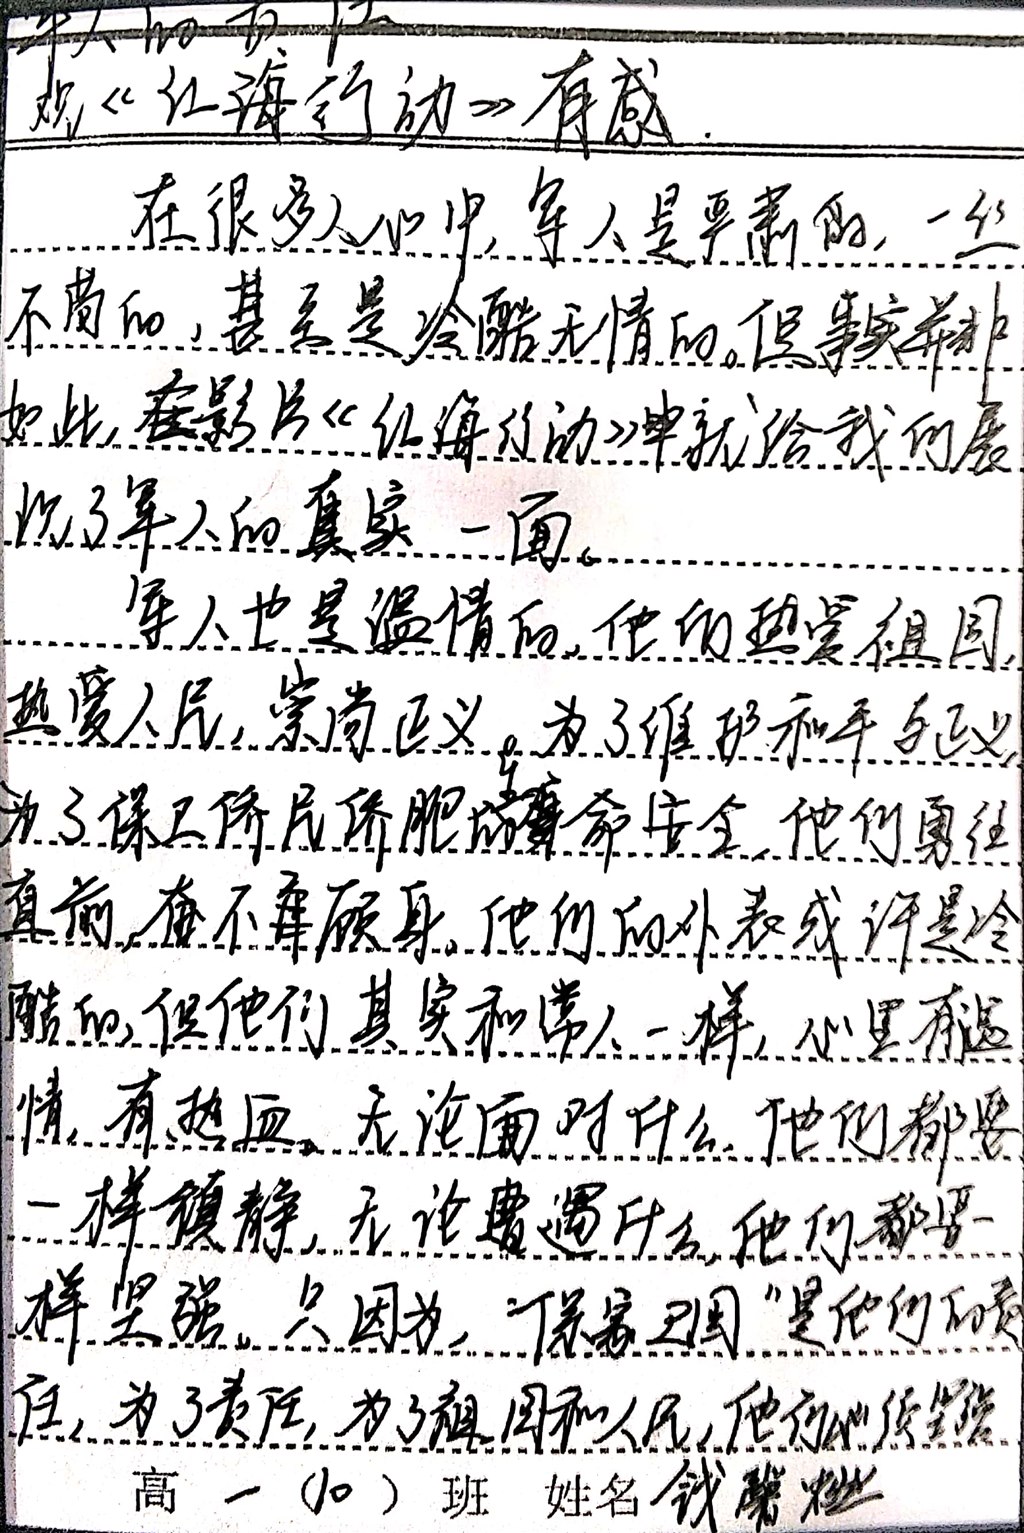 军人的责任
观《红海行动》有感.
在很多人心中,军人是严肃的,一丝
不苟的,甚至是冷酷无情的。但事实并非
如此,在影片《红海行动》中就给我们展
现了军人的真实一面。
军人也是温情的,他们热爱祖国,
热爱人民,崇尚正义。为了维护和平与正义,
为了保卫侨民侨胞的生命安全,他们勇往
直前,奋不顾身。他们的外表或许是冷
酷的,但他们其实和常人一样,心里有温
情,有热血。无论面对什么,他们都要
一样镇静,无论遭遇什么,他们都要一
样坚强。只因为,“保家卫国”是他们的责
任,为了责任,为了祖国和人民,他们必须坚强
高一(10)班 姓名 钱